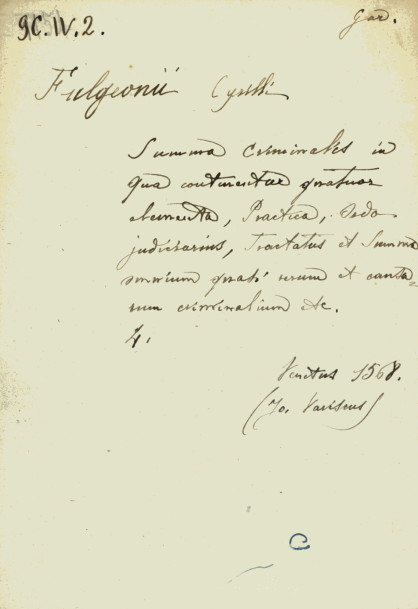 9C.IV.2.
Fulgeonii Cyrilli
Summa criminalis in
qua continentur quatuor
elementa, Practica, Ordo
judiciarius, Tractatus et Summa
omnium et
rum criminalium etc.
4.
Venetus 1568.
(Jo. Variscus)